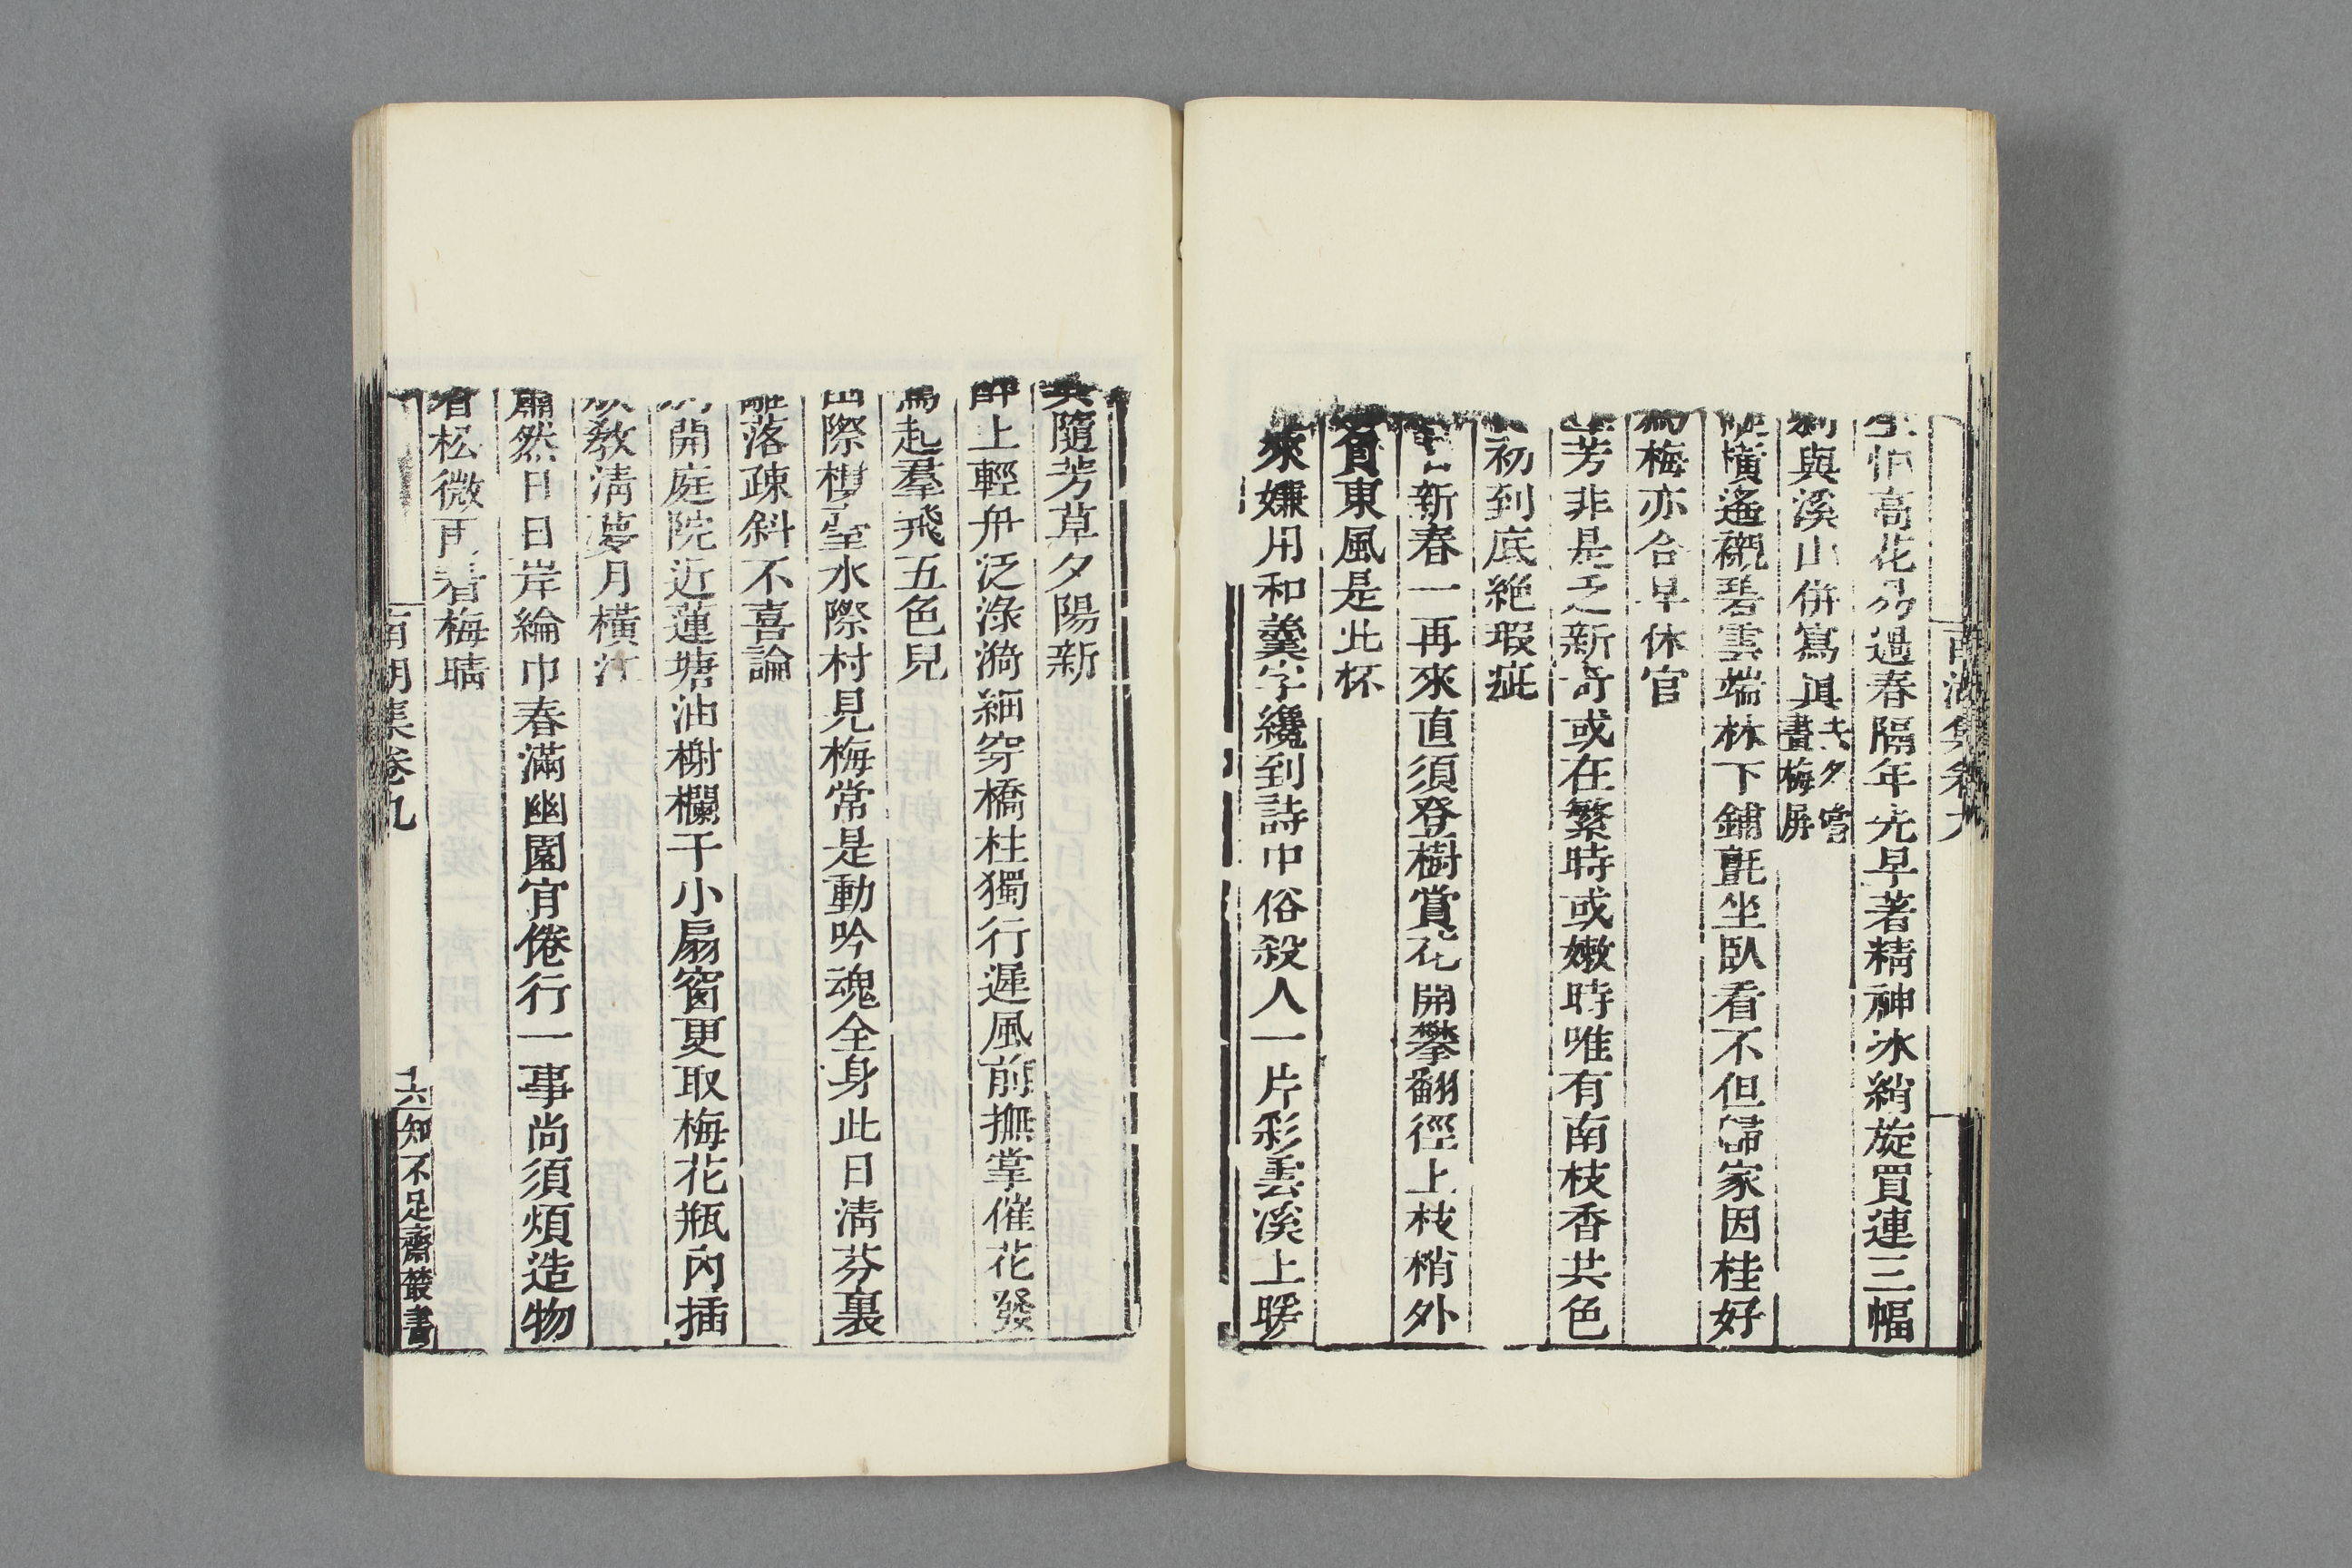 南湖集卷九
生怕高花易過春隔年先早著精神冰綃旋買連三幅
剩與溪山併寫眞去夕嘗畫梅屏
縱橫遙襯碧雲端林下鋪氈坐臥看不但歸家因桂好
爲梅亦合早休官
芳非是乏新奇或在繁時或嫩時唯有南枝香共色
初到底絶瑕疵
新春一再來直須登樹賞花開攀翻徑上枝梢外
東風是此杯
來嫌用和羹字纔到詩中俗殺人一片彩雲溪上暖
隨芳草夕陽新
醉上輕舟泛淥漪細穿橋柱獨行遲風前撫掌催花發
驚起羣飛五色兒
山際樓臺水際村見梅常是動吟魂全身此日清芬裏
籬落疎斜不喜論
開庭院近蓮塘油榭欄干小扇窗更取梅花瓶內插
教清夢月橫江
蕭然日日岸綸巾春滿幽園宦倦行一事尚須煩造物
看松微雨看梅晴
南湖集卷九
十六
知不足齋叢書